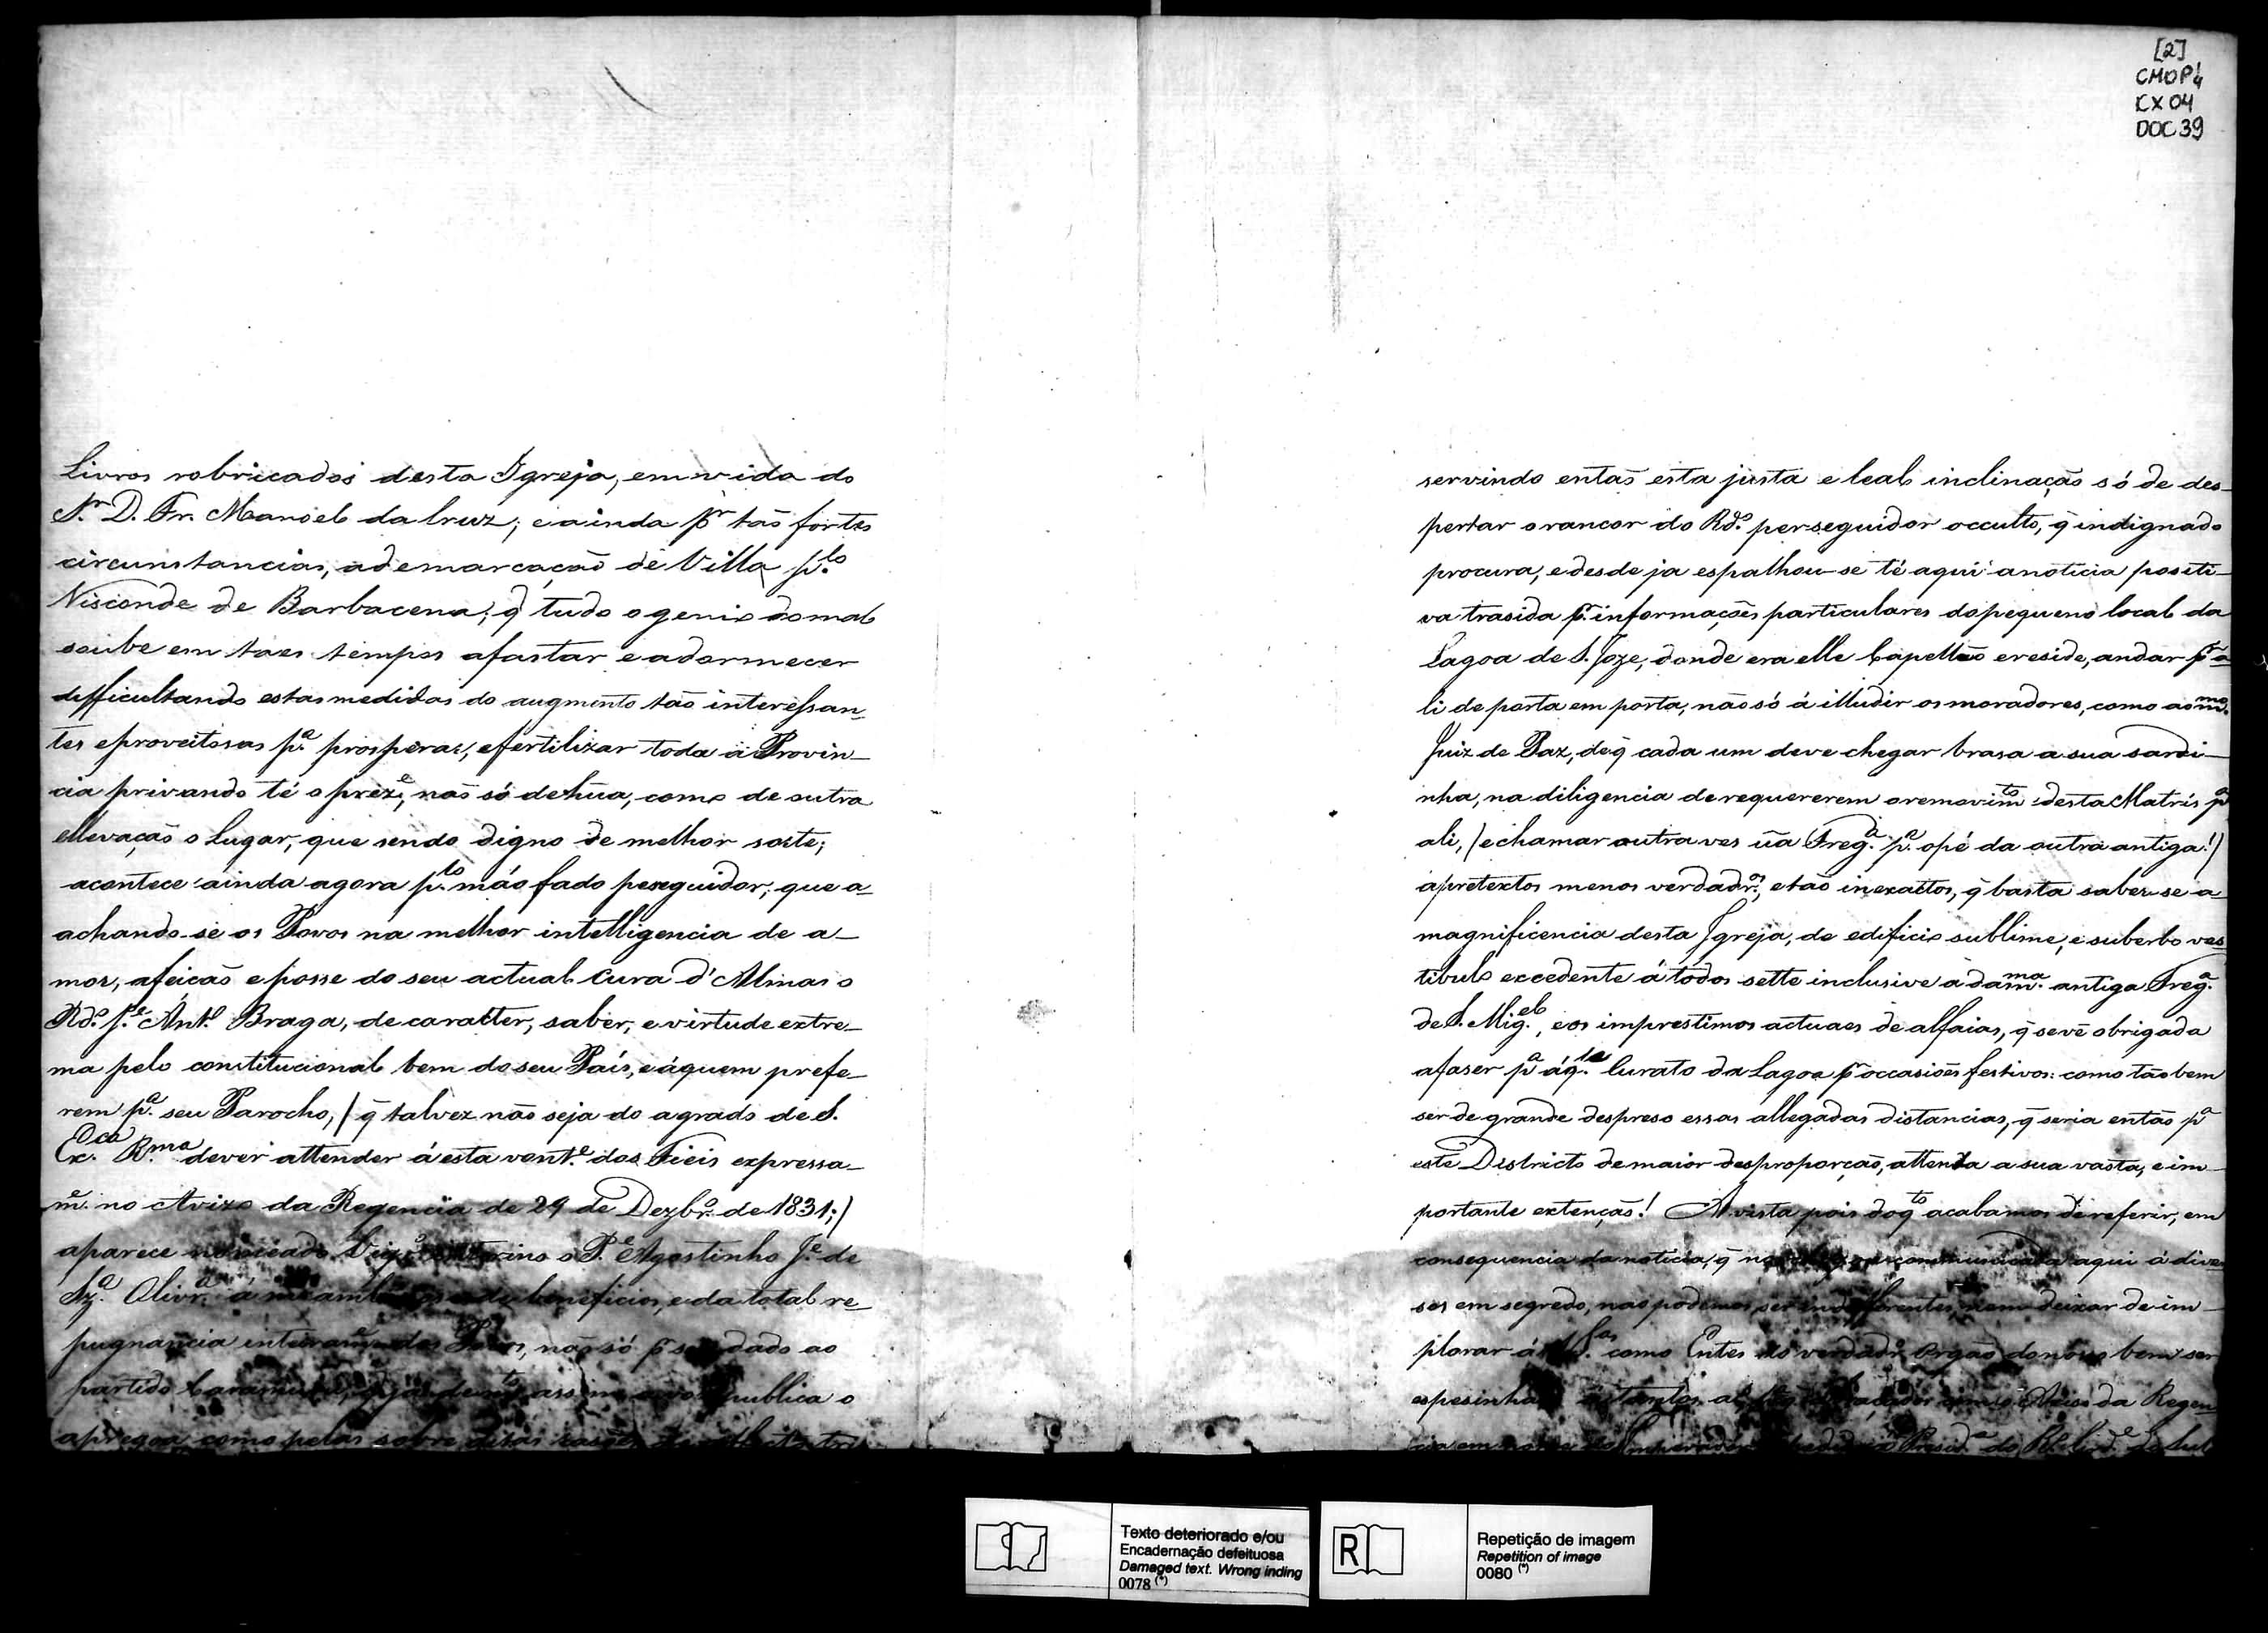 [2]
CMOP 4
CX 04
DOC 39
Livros robricados desta Igreja, em vida do
Sr. D. Fr. Manoel da Cruz; e ainda pr tão fortes
circunstancias, a demarcação de Villa p.lo
Visconde de Barbacena; q̃ tudo o genio do mal
soube em taes tempos afastar e adormecer
difficultando estas medidas do augmento tão interessan_
tes e proveitosas p.a prosperar, e fertilizar toda a Provin_
cia privando té o prez.e, não só de hũa, como de outra
ellevação o Lugar, que sendo digno de melhor sorte;
acontece ainda agora p.lo máo fado perseguidor, que a_
achando-se os Povos na melhor intelligencia de a_
mor, afeição e posse do seu actual Cura d'Almas o
Rd.o P.e Ant.o Braga, de caratter, saber, e virtude extre_
ma pelo constitucional bem do seu País, e áquem prefe_
rem p.a seu Parocho, / q̃ talvez não seja do agrado de S.
Ex.cia R.ma dever attender á esta vont.e dos Fieis expressa_
m.e no Avizo da Regencia de 29 de Dezbr.o de 1831; /
aparece nomeado Vig.o o P.e Agostinho J.e de
Az.a Olivr.a beneficios, e da total re_
pugnancia dos Povos, não só p̃ dado ao
partido publica o
apregoa como pelas sobre ditas
servindo então esta justa e leal inclinação só de des_
pertar o rancor do Rd.o perseguidor occulto, q̃ indignado
procura, e desde ja espalhou-se té aqui a noticia positi_
va trasida p.r informações particulares do pequeno local da
Lagoa de S. Joze, donde era elle Capellão e reside, andar p.r a_
li de porta em porta, não só á illudir os moradores, como ao m.mo
Juiz de Paz, de q̃ cada um deve chegar brasa a sua sardi_
nha, na diligencia de requererem o removim.to desta Matris p.a
ali, / e chamar outra ves ũa Freg.a p.a o pé da outra antiga! /
a pretextos menos verdadr.os, e tão inexactos, q̃ basta saber-se a
magnificencia desta Igreja, de edificio sublime, e suberbo ves
tibulo excedente á todos sette inclusive a da m.ma antiga Freg.a
de S. Mig.el, e os imprestimos actuaes de alfaias, q̃ se vê obrigada
a faser p.a áq.le Curato da Lagoa p.r occasiões festivos: como tão bem
ser de grande despreso essas allegadas distancias, q̃ seria então p.a
este Districto de maior desproporção, attenta a sua vasta, e im_
portante extenção! A vista pois do q.to acabamos de referir, em
consequencia da noticia, q̃ aqui á diver
sos em segredo, não podemos ser indifferentes, nem deixar de im_
plorar á V.S.as como Entes do verdadr.o orgão do nosso bem ser
espesinha Aviso da Regen
cia em do Imperador Presid.e do
Texto deteriorado e/ou
Encadernação defeituosa
Damaged text. Wrong inding
0078 (*)
R
Repetição de imagem
Repetition of image
0080 (*)